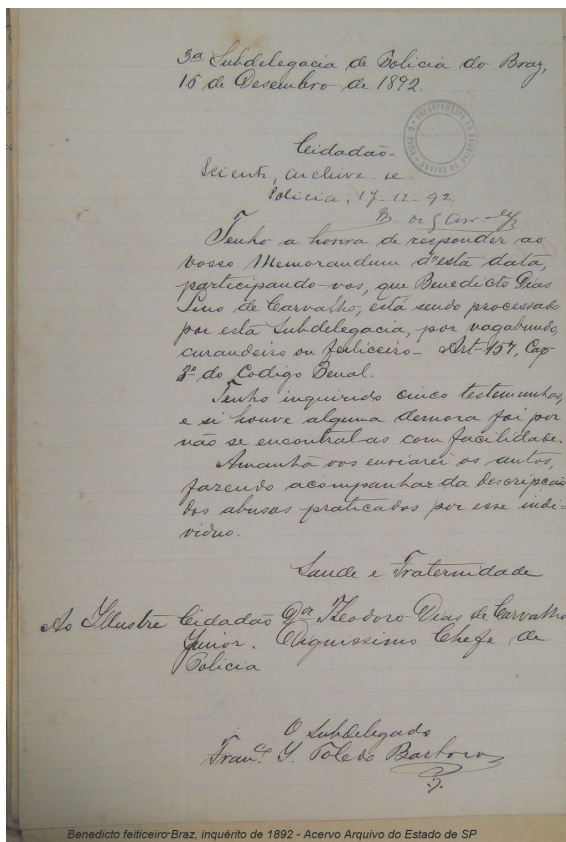 3ª Subdelegacia de Policia do Braz,
16 de Desembro de 1892.
Cidadão-
Sciente, archive-se
Policia, 17-12-92
Tenho a honra de responder ao
vosso Memorandum d'esta data,
participando-vos, que Benedicto Dias
Lino de Carvalho, está sendo processado
por esta Subdelegacia, por vagabundo,
curandeiro ou feiticeiro- Art-157, Cap
3º do Codigo Penal.
Tenho inquirido cinco testemunhas,
e si houve alguma demora foi por
não se encontral-as com facilidade.
Amanhã vos enviarei os autos,
fazendo acompanhar da descripção
dos abusos praticados por esse indi-
viduo.
Saude e Fraternidade
Ao Illustre Cidadão Dor Theodoro Dias de Carvalho
Junior. Dignissimo Chefe de
Policia
O Subdelegado
Franco. Y. Toledo Barbosa
Benedicto feiticeiro-Braz, inquérito de 1892 - Acervo Arquivo do Estado de SP